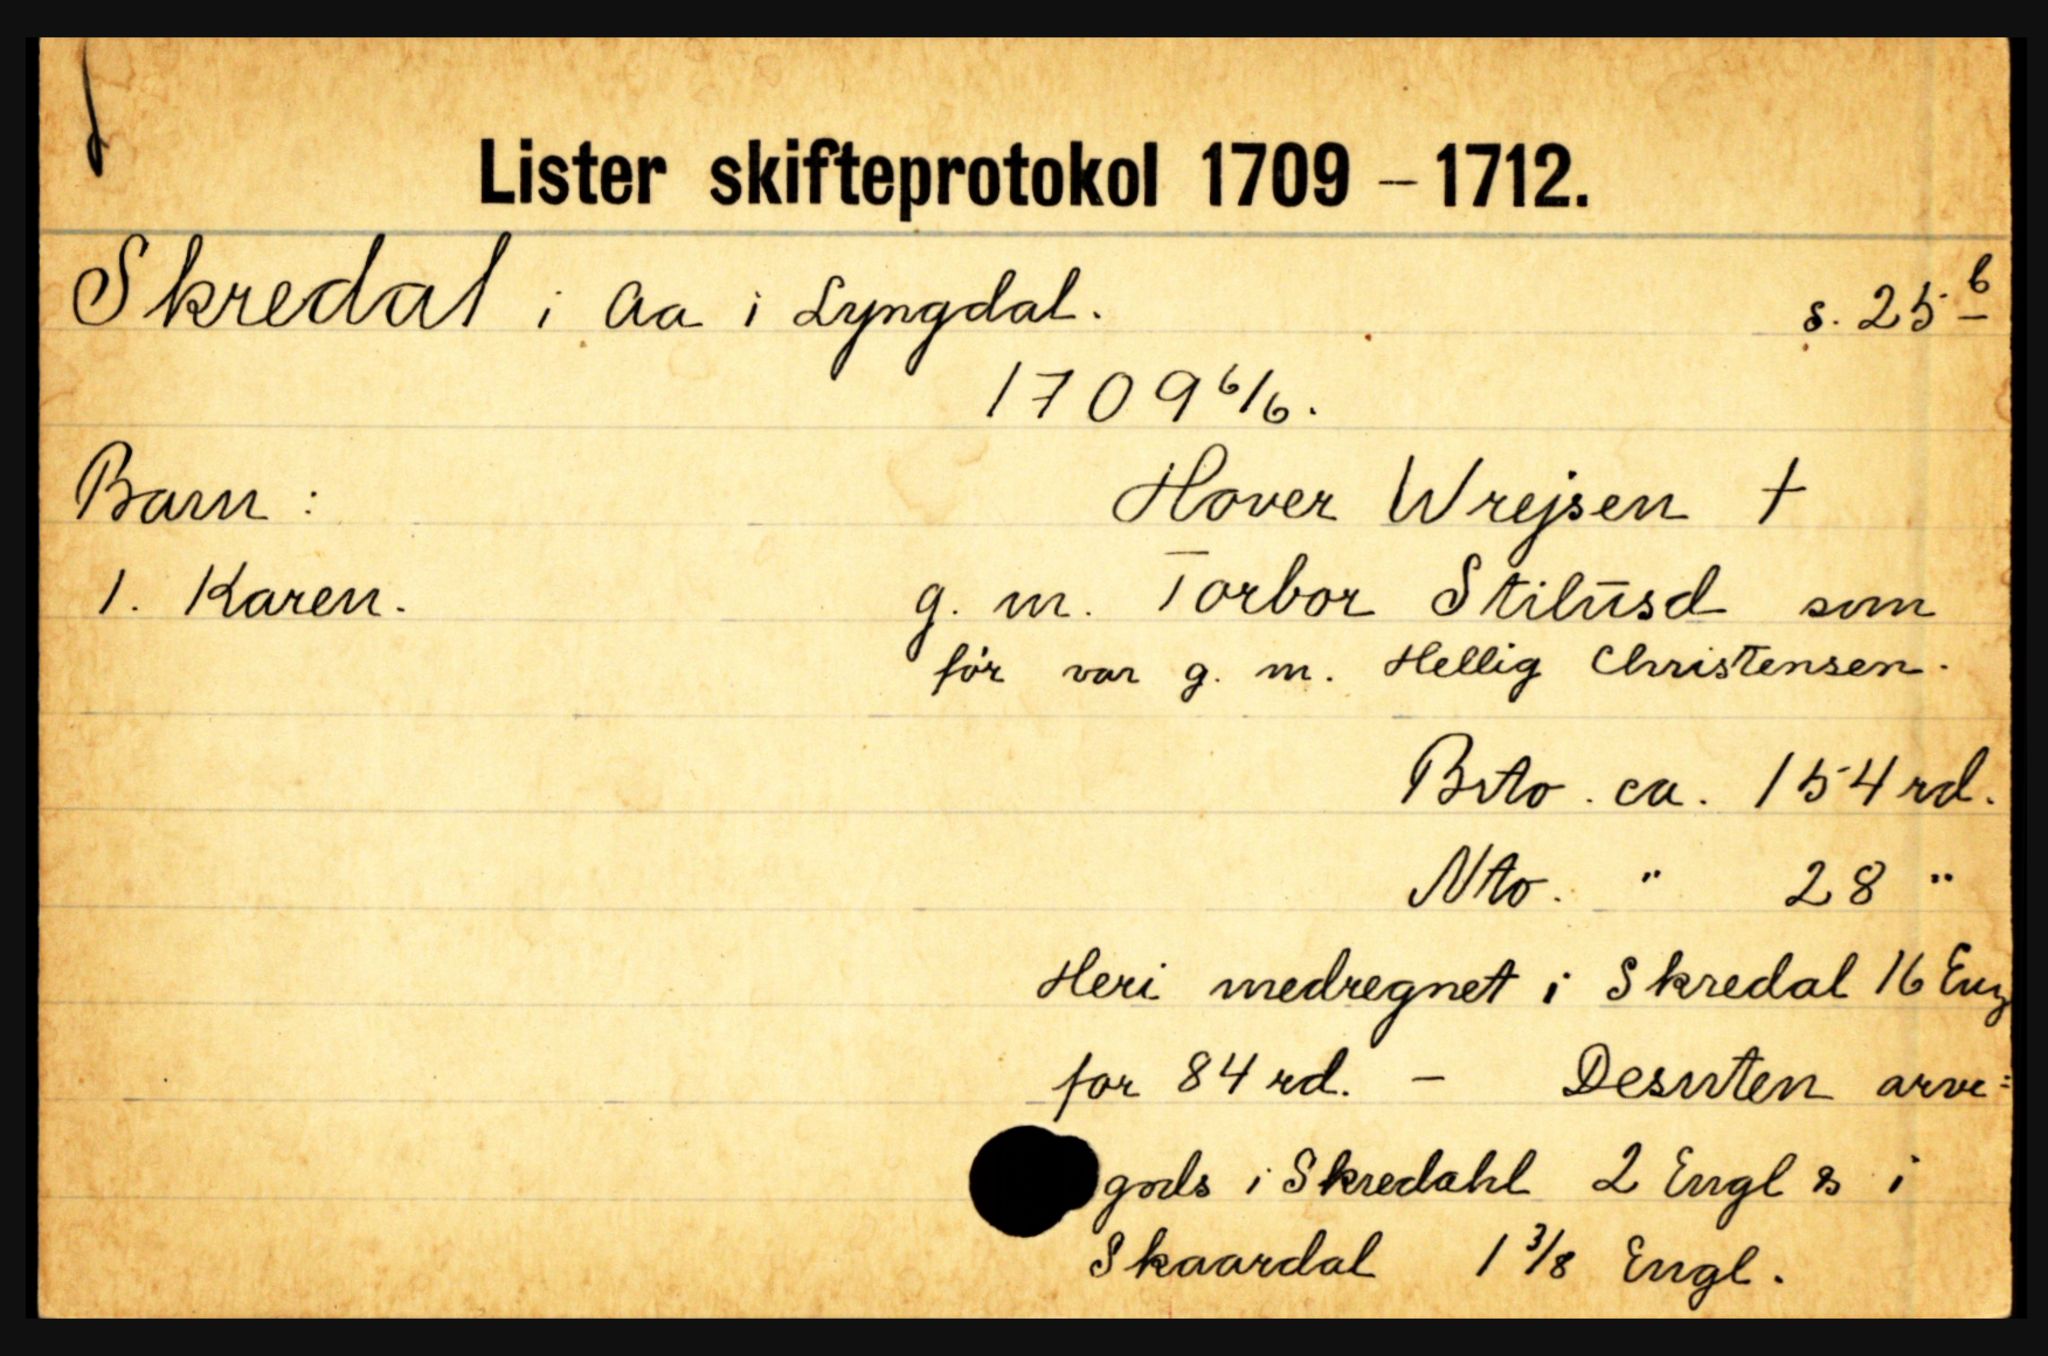 Lister skifteprotokol 1709 – 1712.
Skredal i Aa i Lyngdal. s. 25 b
1709 6/6.
Barn : Hover Wrejsen †
1. Karen. g. m. Torbor Stilūsd som
før var g. m. Hellig Christensen.
Bto. ca. 154 rd.
Nto. " 28 "
Heri medregnet i Skredal 16 Eng
for 84 rd. – Desuten arve=
gods i Skredahl 2 Engl & i
Skaardal 1 3/8 Engl.